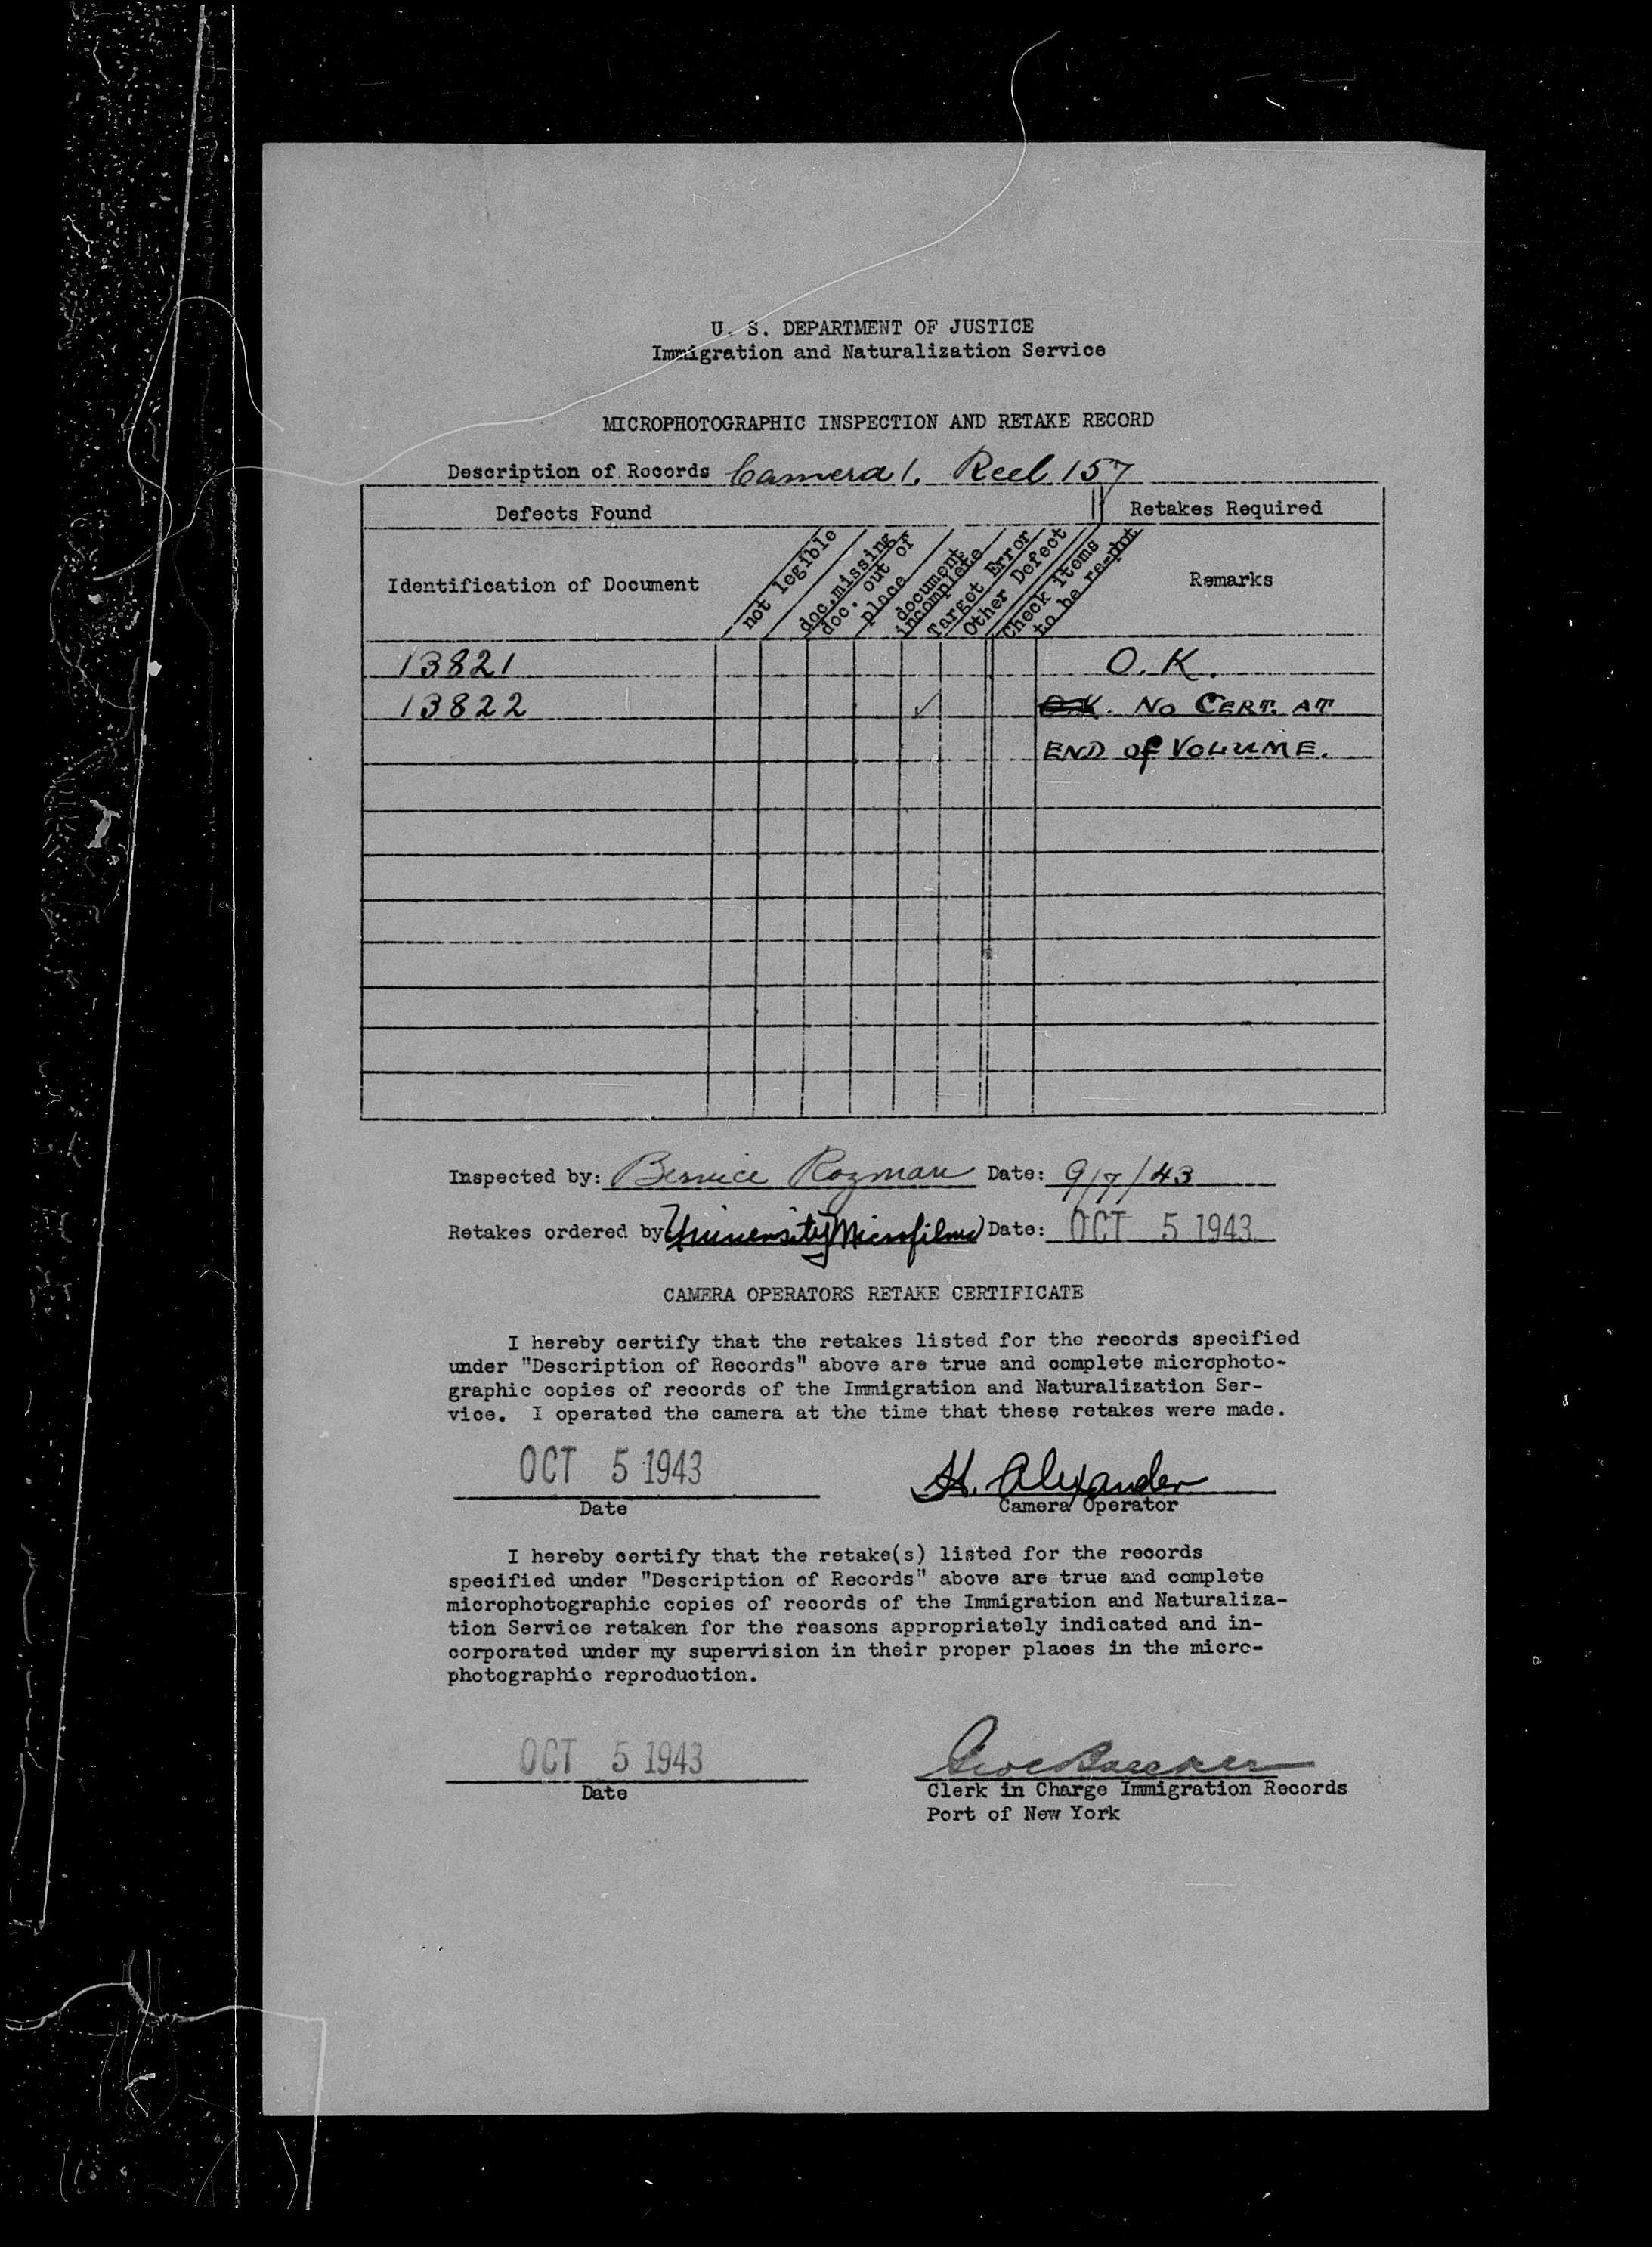 U. S. DEPARTMENT OF JUSTICE
Immigration and Naturalization Service
MICROPHOTOGRAPHIC INSPECTION AND RETAKE RECORD
Description of Records Camera 1. Reel 157
Defects Found
Retakes Required
Identification of Document
not legible
doc. missing
doc. out of
place
document
incomplete
Target Error
Other Defect
Check Items
to be re-phot
Remarks
13821 O.K.
13822 ✓ O.K. NO CERT. AT
END of VOLUME.
Inspected by: Bernice Rozman Date: 9/7/43
Retakes ordered by University Microfilms Date: OCT 5 1943
CAMERA OPERATORS RETAKE CERTIFICATE
I hereby certify that the retakes listed for the records specified
under "Description of Records" above are true and complete microphoto-
graphic copies of records of the Immigration and Naturalization Ser-
vice. I operated the camera at the time that these retakes were made.
OCT 5 1943 H. Alexander
Date Camera Operator
I hereby certify that the retake(s) listed for the records
specified under "Description of Records" above are true and complete
microphotographic copies of records of the Immigration and Naturaliza-
tion Service retaken for the reasons appropriately indicated and in-
corporated under my supervision in their proper places in the micro-
photographic reproduction.
OCT 5 1943
Date
Clerk in Charge Immigration Records
Port of New York